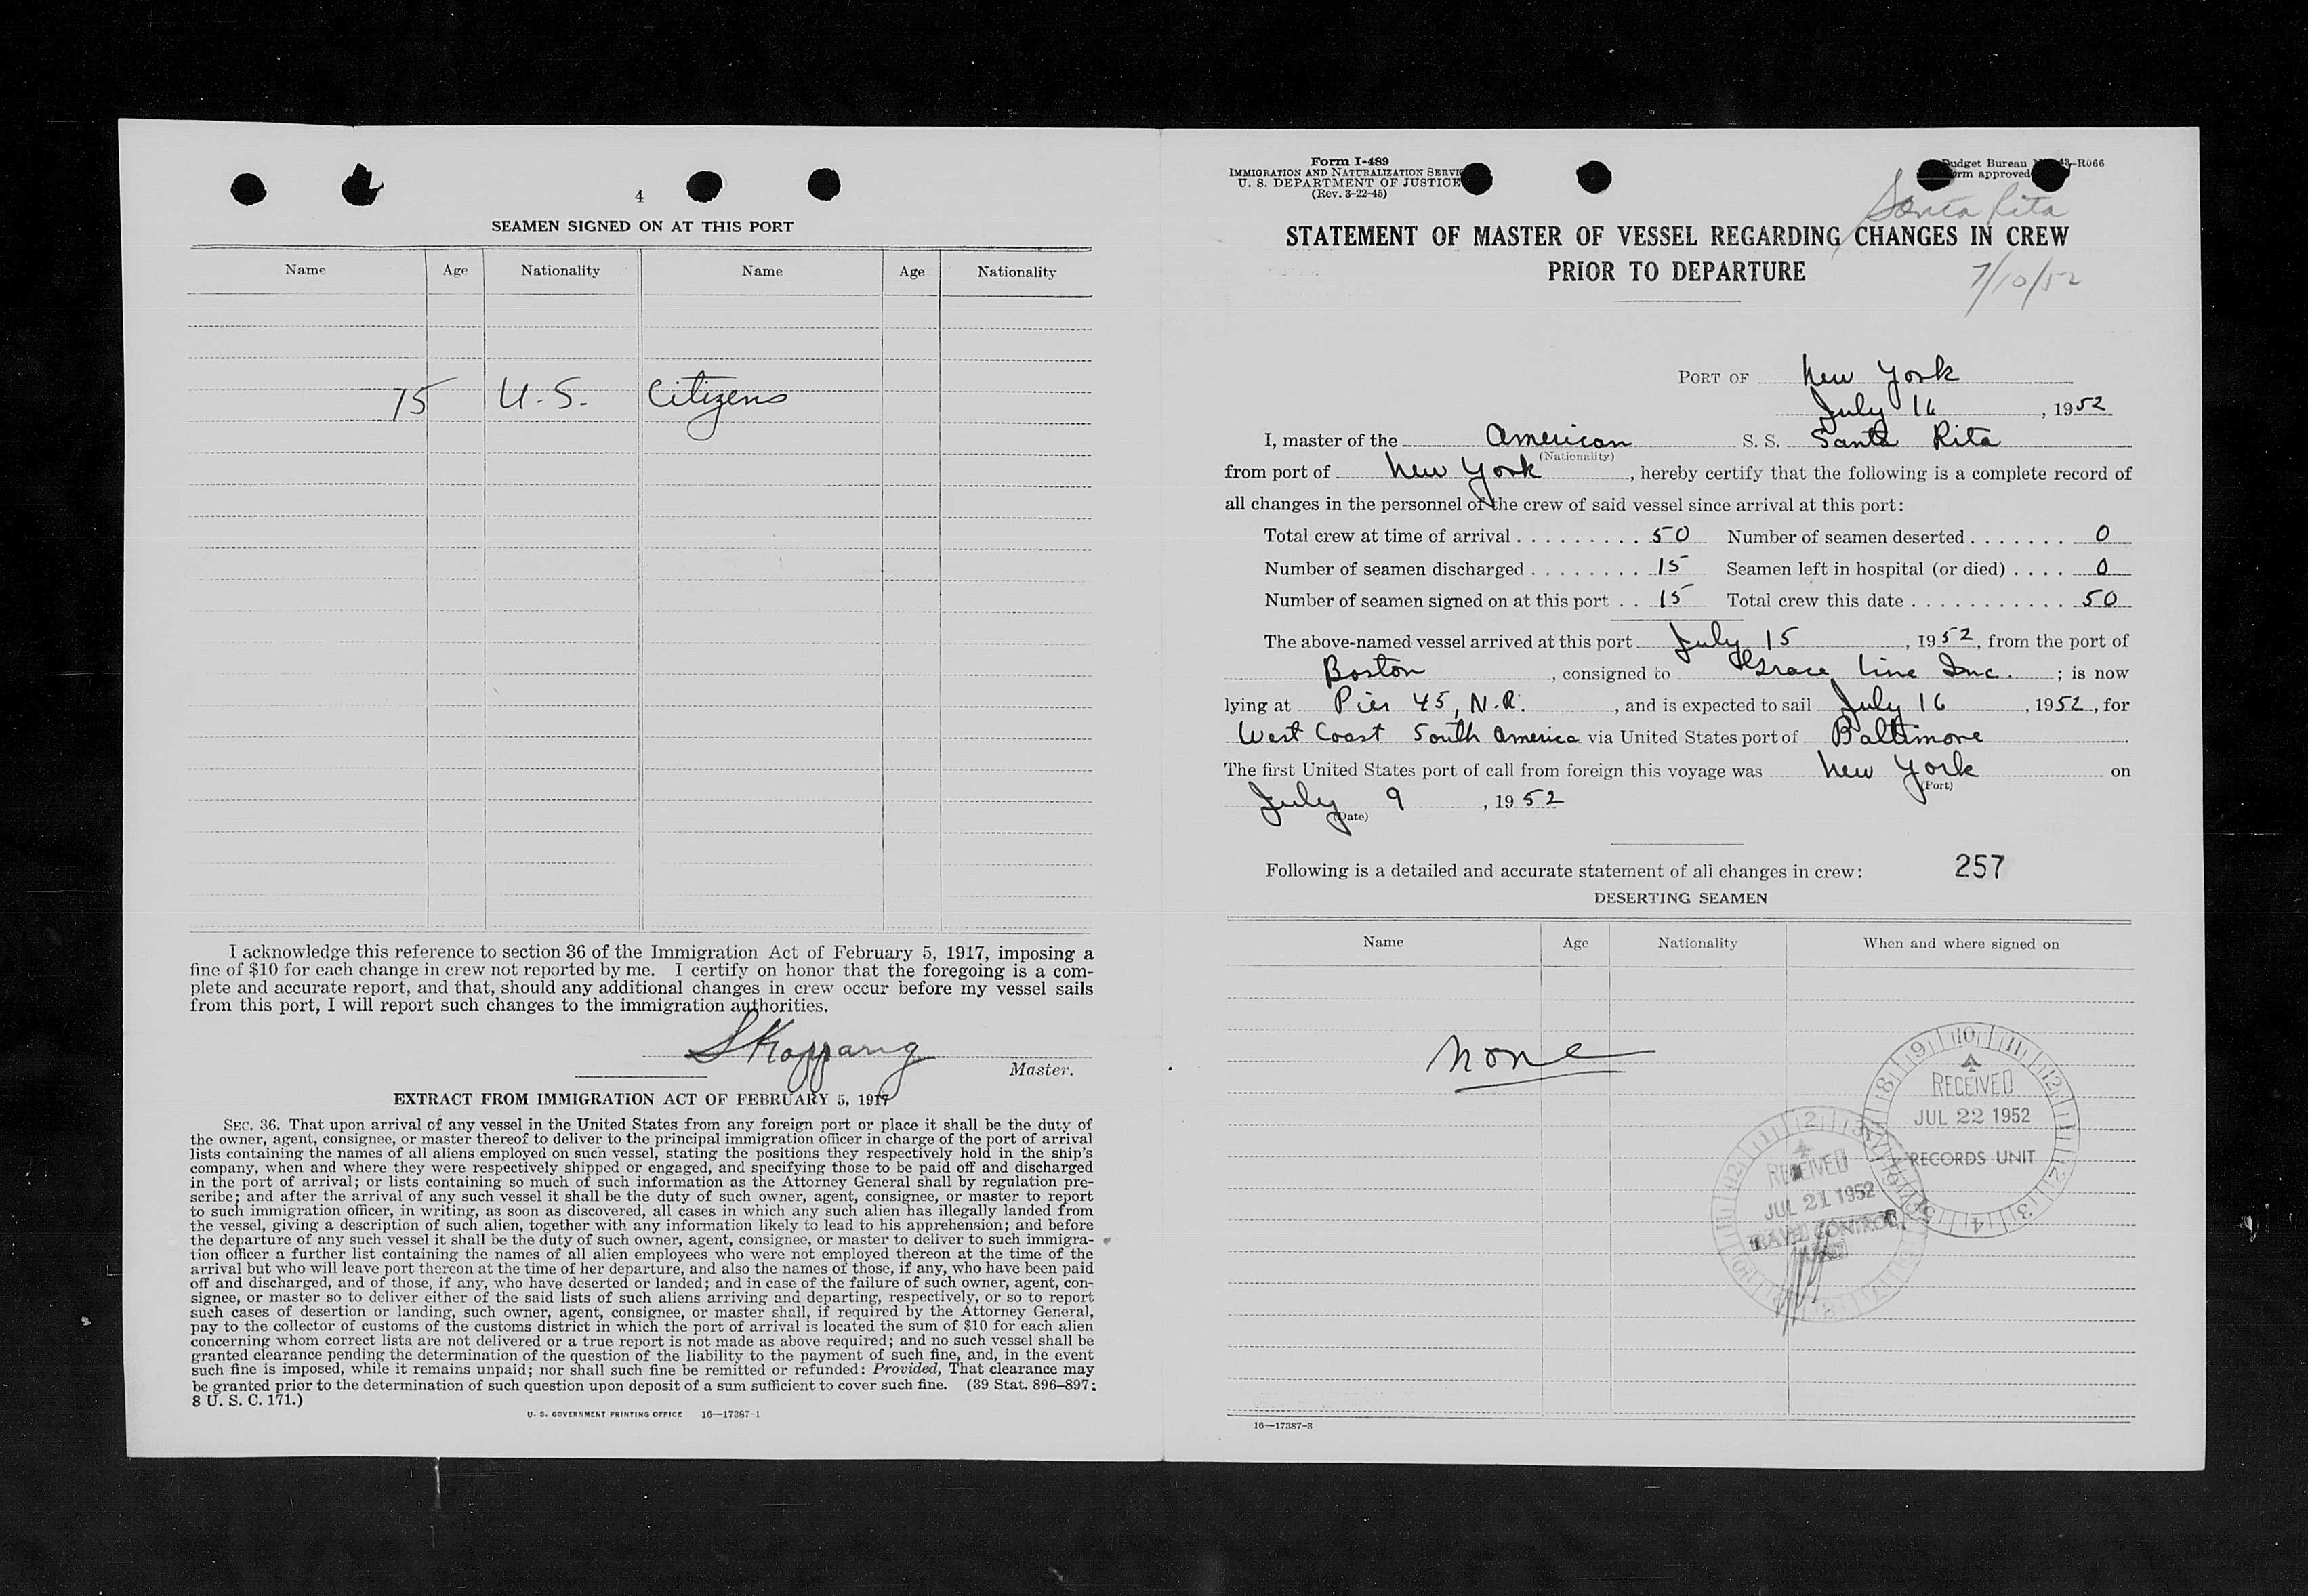 4
SEAMEN SIGNED ON AT THIS PORT
Name Age Nationality Name Age Nationality
15 U.S. Citizens
I acknowledge this reference to section 36 of the Immigration Act of February 5, 1917, imposing a
fine of $10 for each change in crew not reported by me. I certify on honor that the foregoing is a com-
plete and accurate report, and that, should any additional changes in crew occur before my vessel sails
from this port, I will report such changes to the immigration authorities.
Master.
EXTRACT FROM IMMIGRATION ACT OF FEBRUARY 5, 1917
SEC. 36. That upon arrival of any vessel in the United States from any foreign port or place it shall be the duty of
the owner, agent, consignee, or master thereof to deliver to the principal immigration officer in charge of the port of arrival
lists containing the names of all aliens employed on such vessel, stating the positions they respectively hold in the ship's
company, when and where they were respectively shipped or engaged, and specifying those to be paid off and discharged
in the port of arrival; or lists containing so much of such information as the Attorney General shall by regulation pre-
scribe; and after the arrival of any such vessel it shall be the duty of such owner, agent, consignee, or master to report
to such immigration officer, in writing, as soon as discovered, all cases in which any such alien has illegally landed from
the vessel, giving a description of such alien, together with any information likely to lead to his apprehension; and before
the departure of any such vessel it shall be the duty of such owner, agent, consignee, or master to deliver to such immigra-
tion officer a further list containing the names of all alien employees who were not employed thereon at the time of the
arrival but who will leave port thereon at the time of her departure, and also the names of those, if any, who have been paid
off and discharged, and of those, if any, who have deserted or landed; and in case of the failure of such owner, agent, con-
signee, or master so to deliver either of the said lists of such aliens arriving and departing, respectively, or so to report
such cases of desertion or landing, such owner, agent, consignee, or master shall, if required by the Attorney General,
pay to the collector of customs of the customs district in which the port of arrival is located the sum of $10 for each alien
concerning whom correct lists are not delivered or a true report is not made as above required; and no such vessel shall be
granted clearance pending the determination of the question of the liability to the payment of such fine, and, in the event
such fine is imposed, while it remains unpaid; nor shall such fine be remitted or refunded: Provided, That clearance may
be granted prior to the determination of such question upon deposit of a sum sufficient to cover such fine. (39 Stat. 896–897;
8 U. S. C. 171.)
U. S. GOVERNMENT PRINTING OFFICE 16—17387-1
Form I-489
IMMIGRATION AND NATURALIZATION
U. S. DEPARTMENT OF JUSTICE
(Rev. 3-22-45)
Budget Bureau 43-R066
Form approved
Santa Rita
STATEMENT OF MASTER OF VESSEL REGARDING CHANGES IN CREW
PRIOR TO DEPARTURE
7/10/52
PORT OF New York
July 16, 1952
I, master of the American S. S. Santa Rita
(Nationality)
from port of New York, hereby certify that the following is a complete record of
all changes in the personnel of the crew of said vessel since arrival at this port:
Total crew at time of arrival . . . . . . . . . 50 Number of seamen deserted . . . . . . . 0
Number of seamen discharged . . . . . . . . 15 Seamen left in hospital (or died) . . . . 0
Number of seamen signed on at this port . . 15 Total crew this date . . . . . . . . . . . . 50
The above-named vessel arrived at this port July 15, 1952, from the port of
Boston, consigned to Grace Line Inc.; is now
lying at Pier 45, N.R., and is expected to sail July 16, 1952, for
West Coast South America via United States port of Baltimore
The first United States port of call from foreign this voyage was New York on
(Port)
July 9, 1952
(Date)
Following is a detailed and accurate statement of all changes in crew: 257
DESERTING SEAMEN
Name Age Nationality When and where signed on
None
RECEIVED
JUL 22 1952
RECORDS UNIT
RECEIVED
JUL 21 1952
TRAVEL CONTROL
16—17387-3